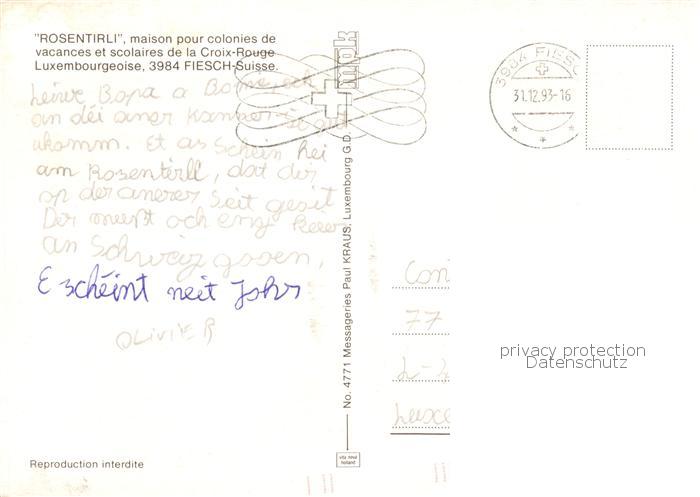 "ROSENTIRLI", maison pour colonies de
vacances et scolaires de la Croix-Rouge
Luxembourgeoise, 3984 FIESCH-Suisse.
3984 FIESC
31.12.93-16
Bopa a och
an déi aner Kanner
ukomm. Et as schéin hei
am Rosentirli, dat dir
op der anerer Seit gesit
Der meißt och eng
an Schweiz goen,
E schéint neit Johr
OLIVIER
No. 4771 Messageries Paul KRAUS, Luxembourg G.D.
mpk
Con
77
L-
Luxe
privacy protection
Datenschutz
Reproduction interdite